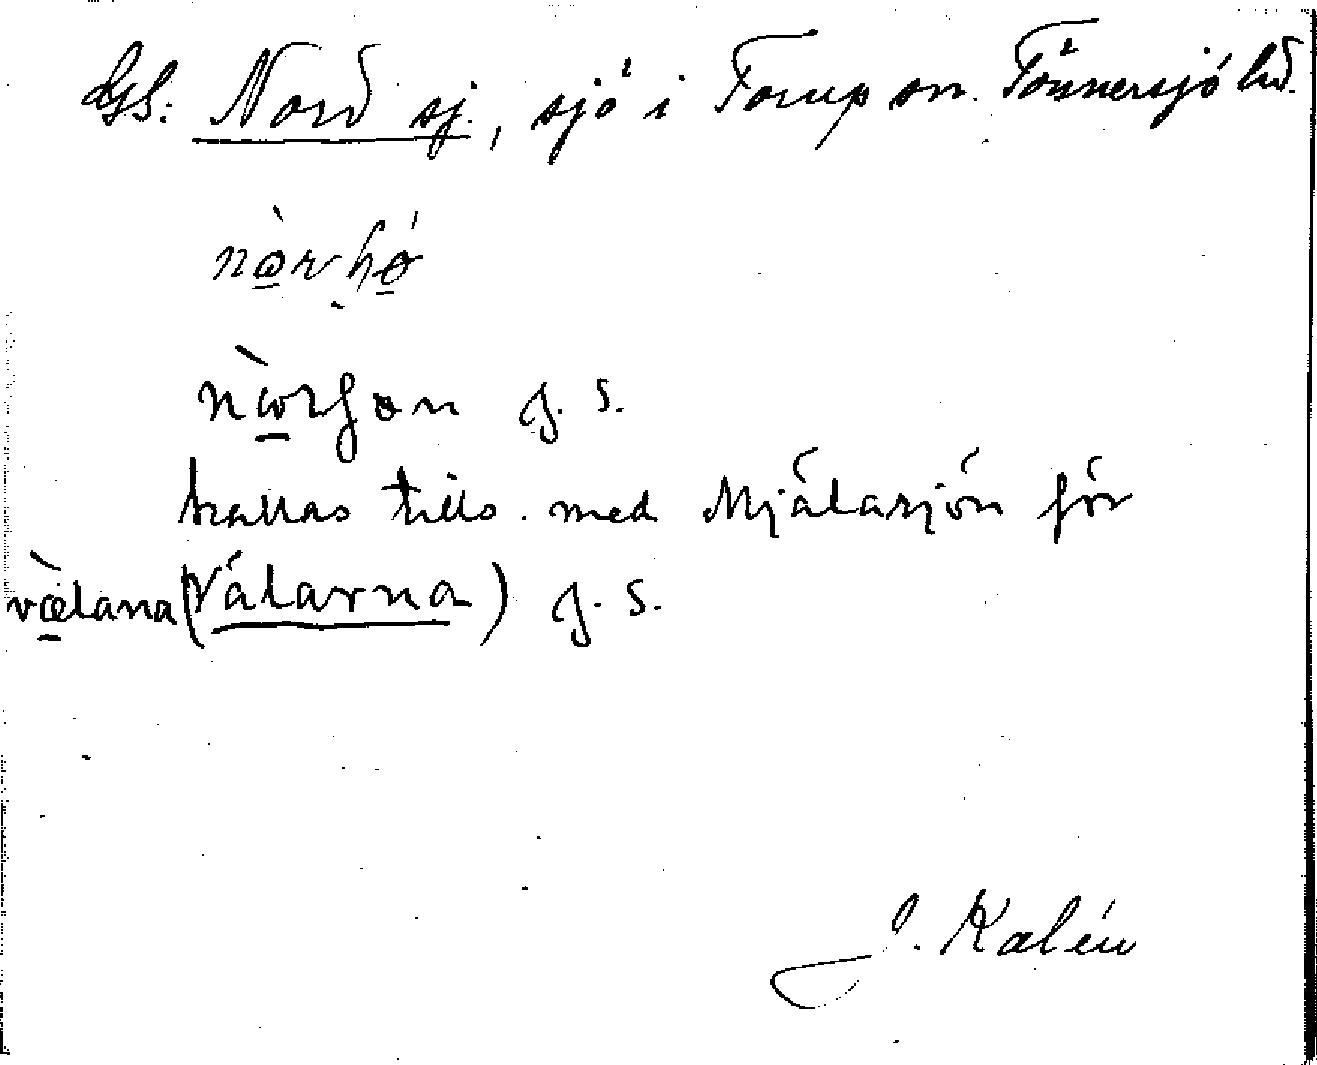 GS: Nord sj., sjö i Torup sn. Tönnersjö hd.
nò̱rhø̱
nò̱rhøn g. s.
kallas tills. med Mjálasjön för
væ̱lana (Válarna) g. s.
J. Kalén